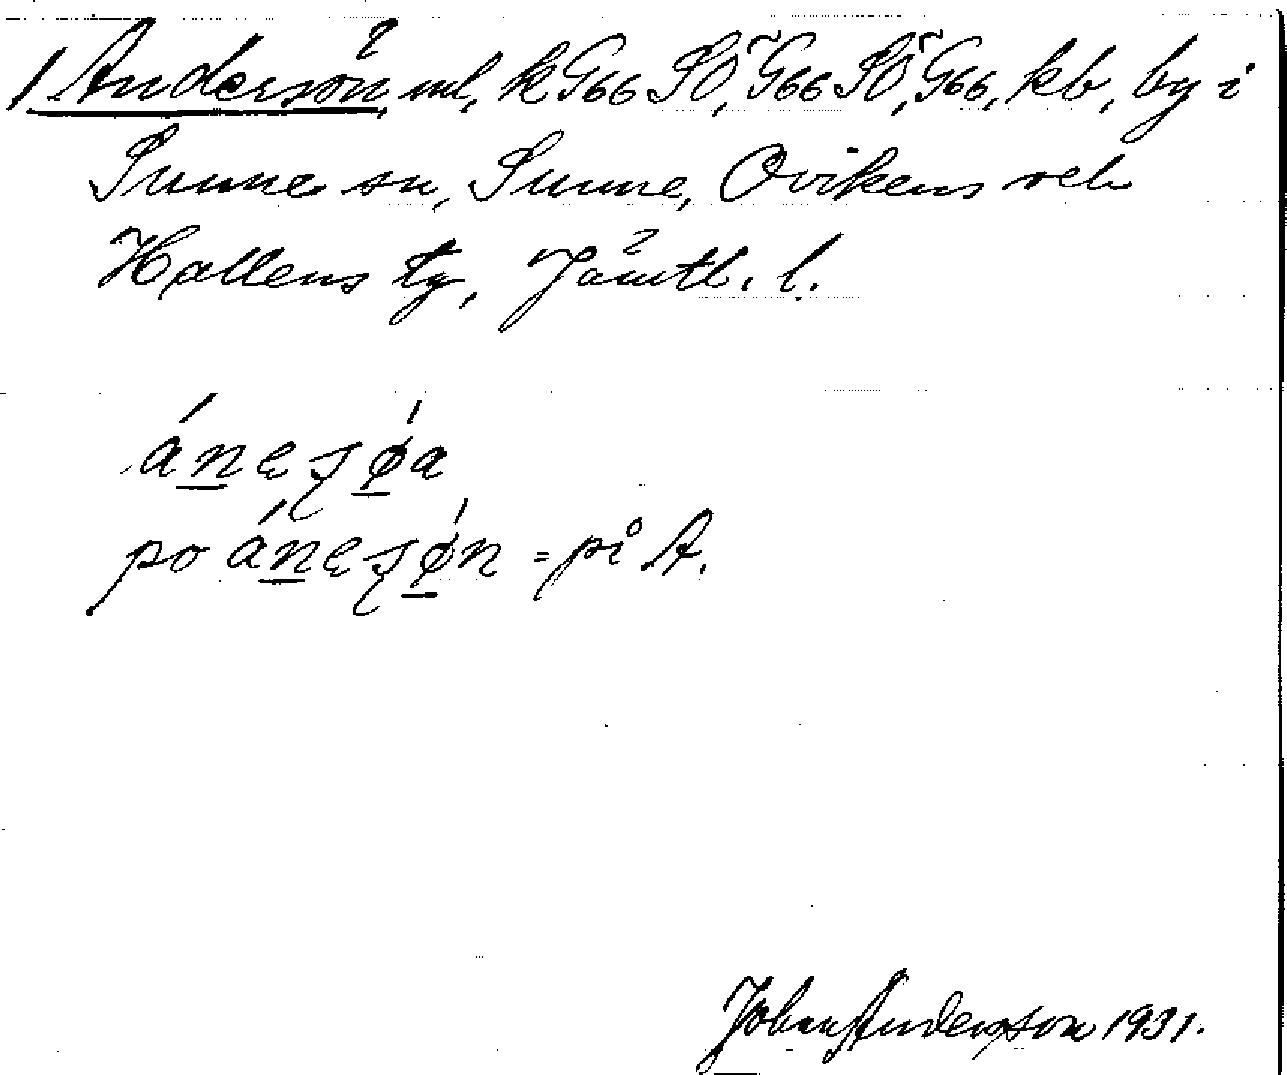 1 Andersön, ml, k G66 SO, G66 SÖ, G66, kb, by i
Sunne sn, Sunne, Ovikens och
Hallens tg, Jämtl. l.
ánesøa
po ánesøn = på A.
Johan Anderson 1931.